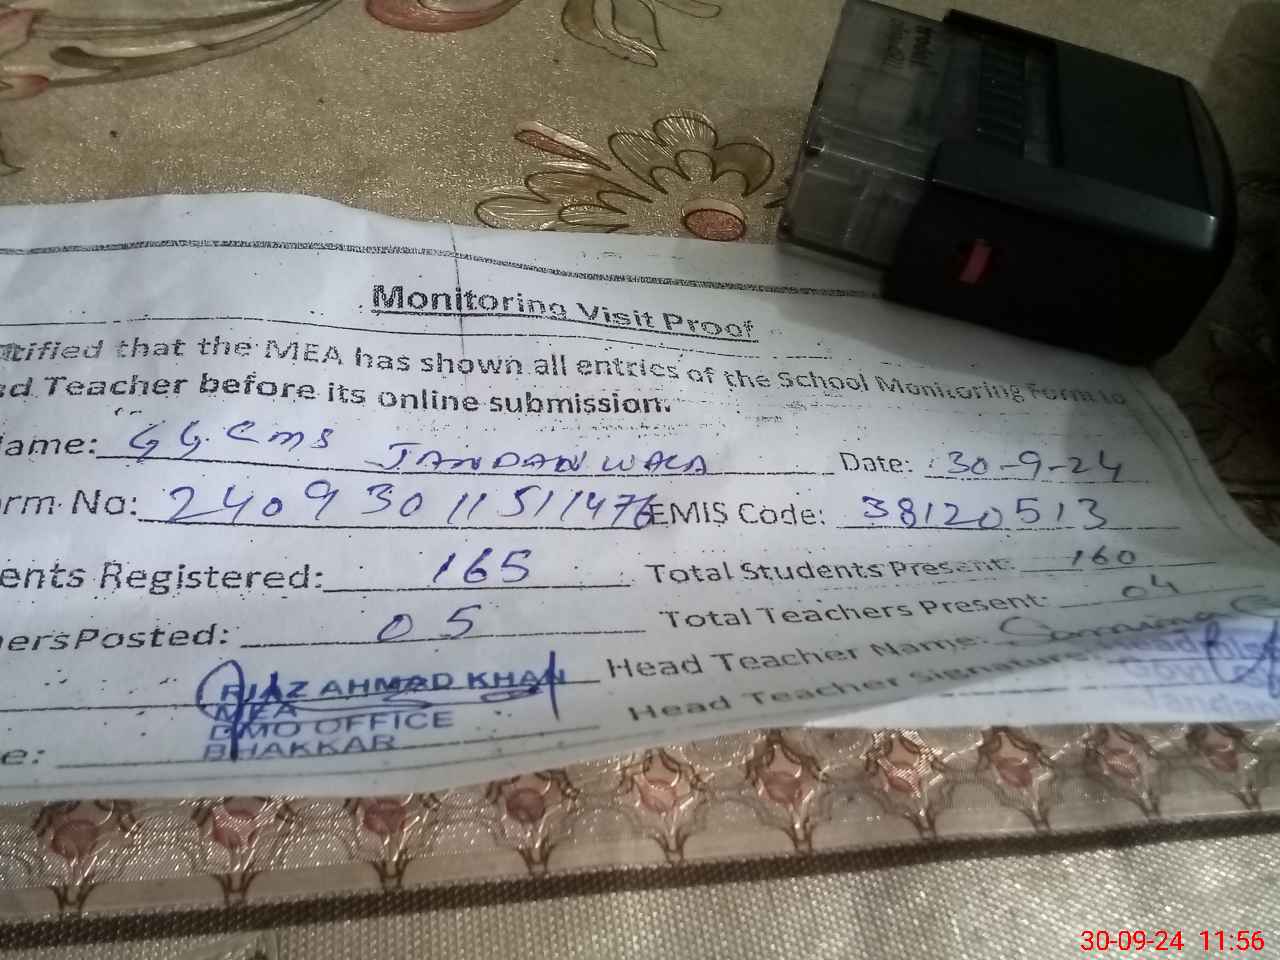 Monitoring Visit Proof
tified that the MEA has shown all entries of the School Monitoring Form to
ed Teacher before its online submission.
ame: GG.Cms JANDANWALA Date: 30-9-24
rm No: 24093011511476 EMIS Code: 38120513
ents Registered: 165 Total Students Present: 160
hersPosted: 05 Total Teachers Present: 04
RIAZ AHMAD KHAN Head Teacher Name:
MEA Head Teacher Signature:
DMO OFFICE
e: BHAKKAR
30-09-24 11:56